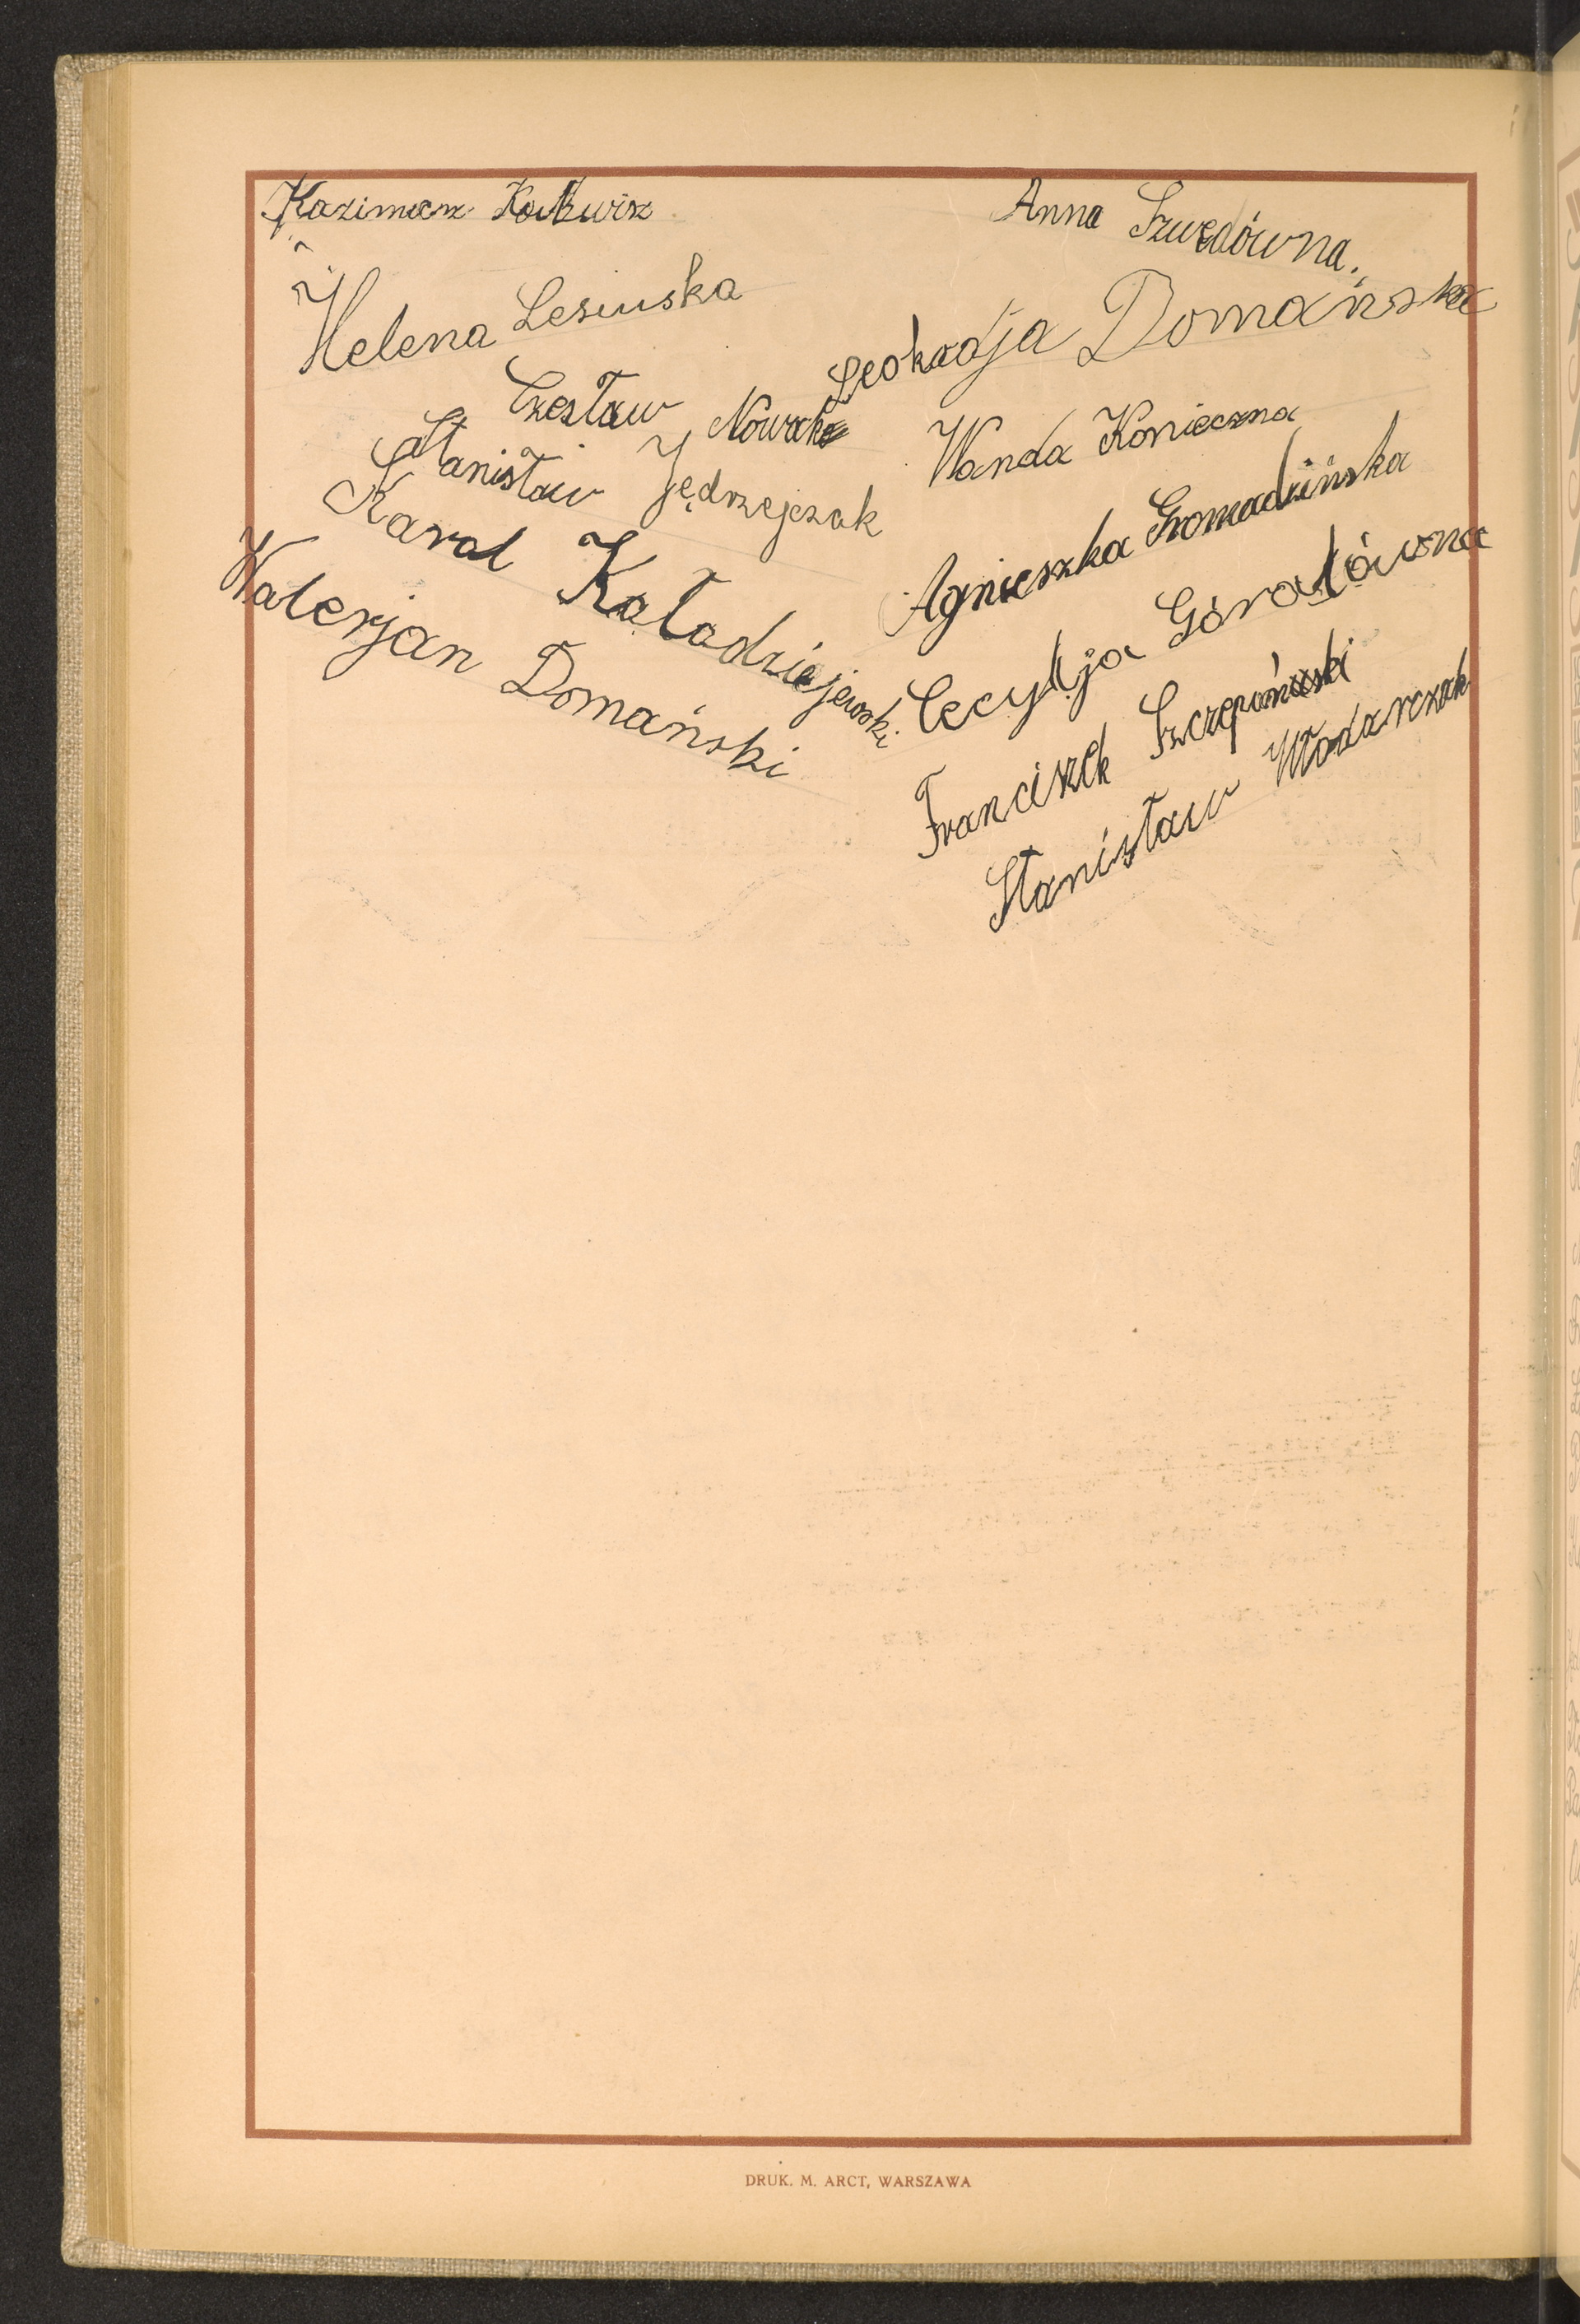 Kazimierz
Helena Lesiuska
Czesław Nowak
Stanisław Jędrzejczak
Karol Kaładziejewski
Walerjan Domański
Anna Szwedówna.
Leokadja Domańska
Wanda Konieczna
Agnieszka Gromadzińska
Cecylja Góralówna
Franciszek Szczepański
Stanisław Włodarczak
DRUK. M. ARCT, WARSZAWA